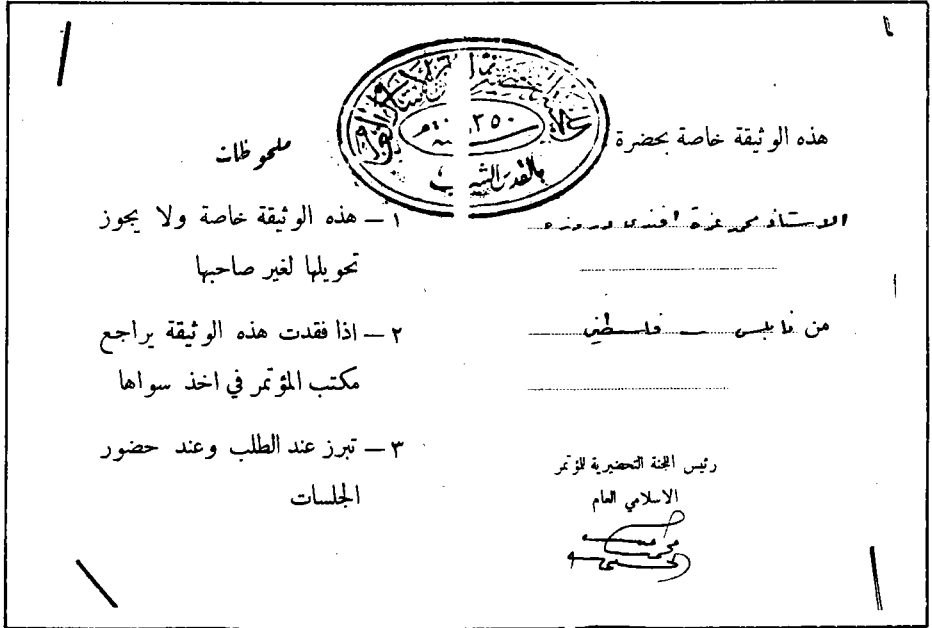 هذه الوثيقة خاصة بحضرة
الاستاذ محمد عزة افندي دروزه
من نابلس — فلسطين
رئيس اللجنة التحضيرية للمؤتمر
الاسلامي العام
محمد امين
الحسيني
١٣٥٠
بالقدس الشريف
ملحوظات
١ – هذه الوثيقة خاصة ولا يجوز
تحويلها لغير صاحبها
٢ – اذا فقدت هذه الوثيقة يراجع
مكتب المؤتمر في اخذ سواها
٣ – تبرز عند الطلب وعند حضور
الجلسات